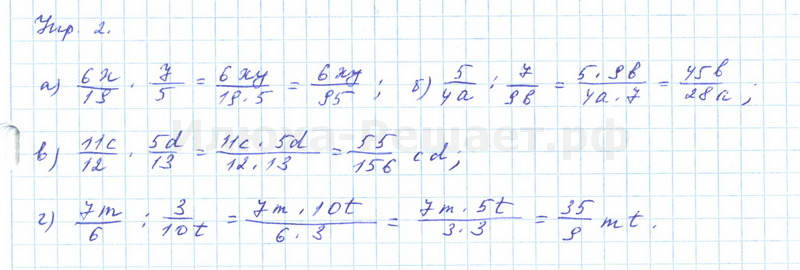 Упр. 2.
а) 6x/19 · y/5 = 6xy/(19·5) = 6xy/95; б) 5/4a : 7/9b = (5·9b)/(4a·7) = 45b/28a;
в) 11c/12 · 5d/13 = (11c·5d)/(12·13) = 55/156 cd;
г) 7m/6 : 3/10t = (7m·10t)/(6·3) = (7m·5t)/(3·3) = 35/9 mt.